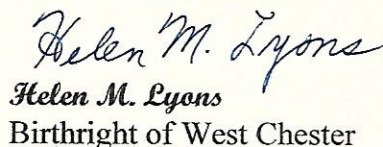 Helen M. Lyons
Helen M. Lyons
Birthright of West Chester